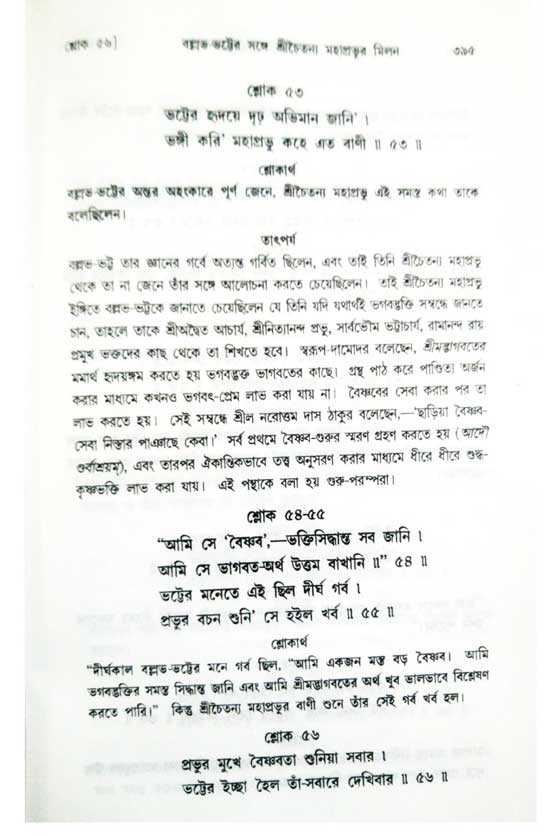 শ্লোক ৫৬]
বল্লভ-ভট্টের সঙ্গে শ্রীচৈতন্য মহাপ্রভুর মিলন
৩৯৫
শ্লোক ৫৩
ভট্টের হৃদয়ে দৃঢ় অভিমান জানি' ।
ভঙ্গী করি' মহাপ্রভু কহে এত বাণী ॥ ৫৩ ॥
শ্লোকার্থ
বল্লভ-ভট্টের অন্তর অহংকারে পূর্ণ জেনে, শ্রীচৈতন্য মহাপ্রভু এই সমস্ত কথা তাকে
বলেছিলেন।
তাৎপর্য
বল্লভ-ভট্ট তার জ্ঞানের গর্বে অত্যন্ত গর্বিত ছিলেন, এবং তাই তিনি শ্রীচৈতন্য মহাপ্রভু
থেকে তা না জেনে তাঁর সঙ্গে আলোচনা করতে চেয়েছিলেন। তাই শ্রীচৈতন্য মহাপ্রভু
ইঙ্গিতে বল্লভ-ভট্টকে জানাতে চেয়েছিলেন যে তিনি যদি যথার্থই ভগবদ্ভক্তি সম্বন্ধে জানতে
চান, তাহলে তাকে শ্রীঅদ্বৈত আচার্য, শ্রীনিত্যানন্দ প্রভু, সার্বভৌম ভট্টাচার্য, রামানন্দ রায়
প্রমুখ ভক্তদের কাছ থেকে তা শিখতে হবে। স্বরূপ-দামোদর বলেছেন, শ্রীমদ্ভাগবতের
মমার্থ হৃদয়ঙ্গম করতে হয় ভগবদ্ভক্ত ভাগবতের কাছে। গ্রন্থ পাঠ করে পাণ্ডিত্য অর্জন
করার মাধ্যমে কখনও ভগবৎ-প্রেম লাভ করা যায় না। বৈষ্ণবের সেবা করার পর তা
লাভ করতে হয়। সেই সম্বন্ধে শ্রীল নরোত্তম দাস ঠাকুর বলেছেন,—'ছাড়িয়া বৈষ্ণব-
সেবা নিস্তার পাঞাছে কেবা।' সর্ব প্রথমে বৈষ্ণব-গুরুর স্মরণ গ্রহণ করতে হয় (আদৌ
গুর্বাশ্রয়ম্), এবং তারপর ঐকান্তিকভাবে তত্ত্ব অনুসরণ করার মাধ্যমে ধীরে ধীরে শুদ্ধ-
কৃষ্ণভক্তি লাভ করা যায়। এই পন্থাকে বলা হয় গুরু-পরম্পরা।
শ্লোক ৫৪-৫৫
“আমি সে 'বৈষ্ণব',—ভক্তিসিদ্ধান্ত সব জানি ।
আমি সে ভাগবত-অর্থ উত্তম বাখানি ॥” ৫৪ ॥
ভট্টের মনেতে এই ছিল দীর্ঘ গর্ব ।
প্রভুর বচন শুনি' সে হইল খর্ব ॥ ৫৫ ॥
শ্লোকার্থ
“দীর্ঘকাল বল্লভ-ভট্টের মনে গর্ব ছিল, “আমি একজন মস্ত বড় বৈষ্ণব। আমি
ভগবদ্ভক্তির সমস্ত সিদ্ধান্ত জানি এবং আমি শ্রীমদ্ভাগবতের অর্থ খুব ভালভাবে বিশ্লেষণ
করতে পারি।” কিন্তু শ্রীচৈতন্য মহাপ্রভুর বাণী শুনে তাঁর সেই গর্ব খর্ব হল।
শ্লোক ৫৬
প্রভুর মুখে বৈষ্ণবতা শুনিয়া সবার ।
ভট্টের ইচ্ছা হৈল তাঁ-সবারে দেখিবার ॥ ৫৬ ॥